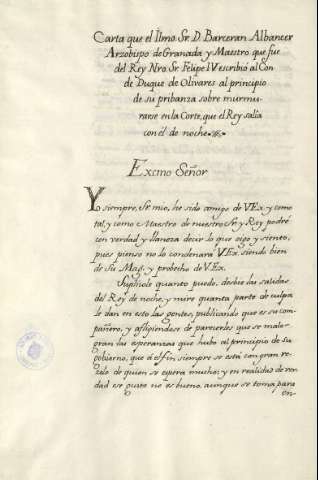 Carta que el Ilmo. Sr. D. Barceran Albancer
Arzobispo de Granada y Maestro que fue
del Rey Nro. Sr. Felipe IV escribió al Con
de Duque de Olivares al principio
de su pribanza sobre murmu-
rarse en la Corte, que el Rey salia
con él de noche.
Excmo Señor
Yo siempre, Sr. mio, he sido amigo de V.Ex. y como
tal, y como Maestro de nuestro Sr. y Rey podré
con verdad y llaneza decir lo que oigo y siento,
pues pienso no lo condenará V.Ex. siendo bien
de Su Mag. y probecho de V.Ex.
Suplicole quanto puedo, desbie las salidas
del Rey de noche, y mire quanta parte de culpa
le dan en esto las gentes, publicando que es su com-
pañero, y afligiendose de parecerles que se malo-
gran las esperanzas que hubo al principio de su
gobierno, que á el fin siempre se está con gran re-
zelo de quien se espera mucho; y en realidad de ver-
dad ese gusto no es bueno, aunque se toma para
en-